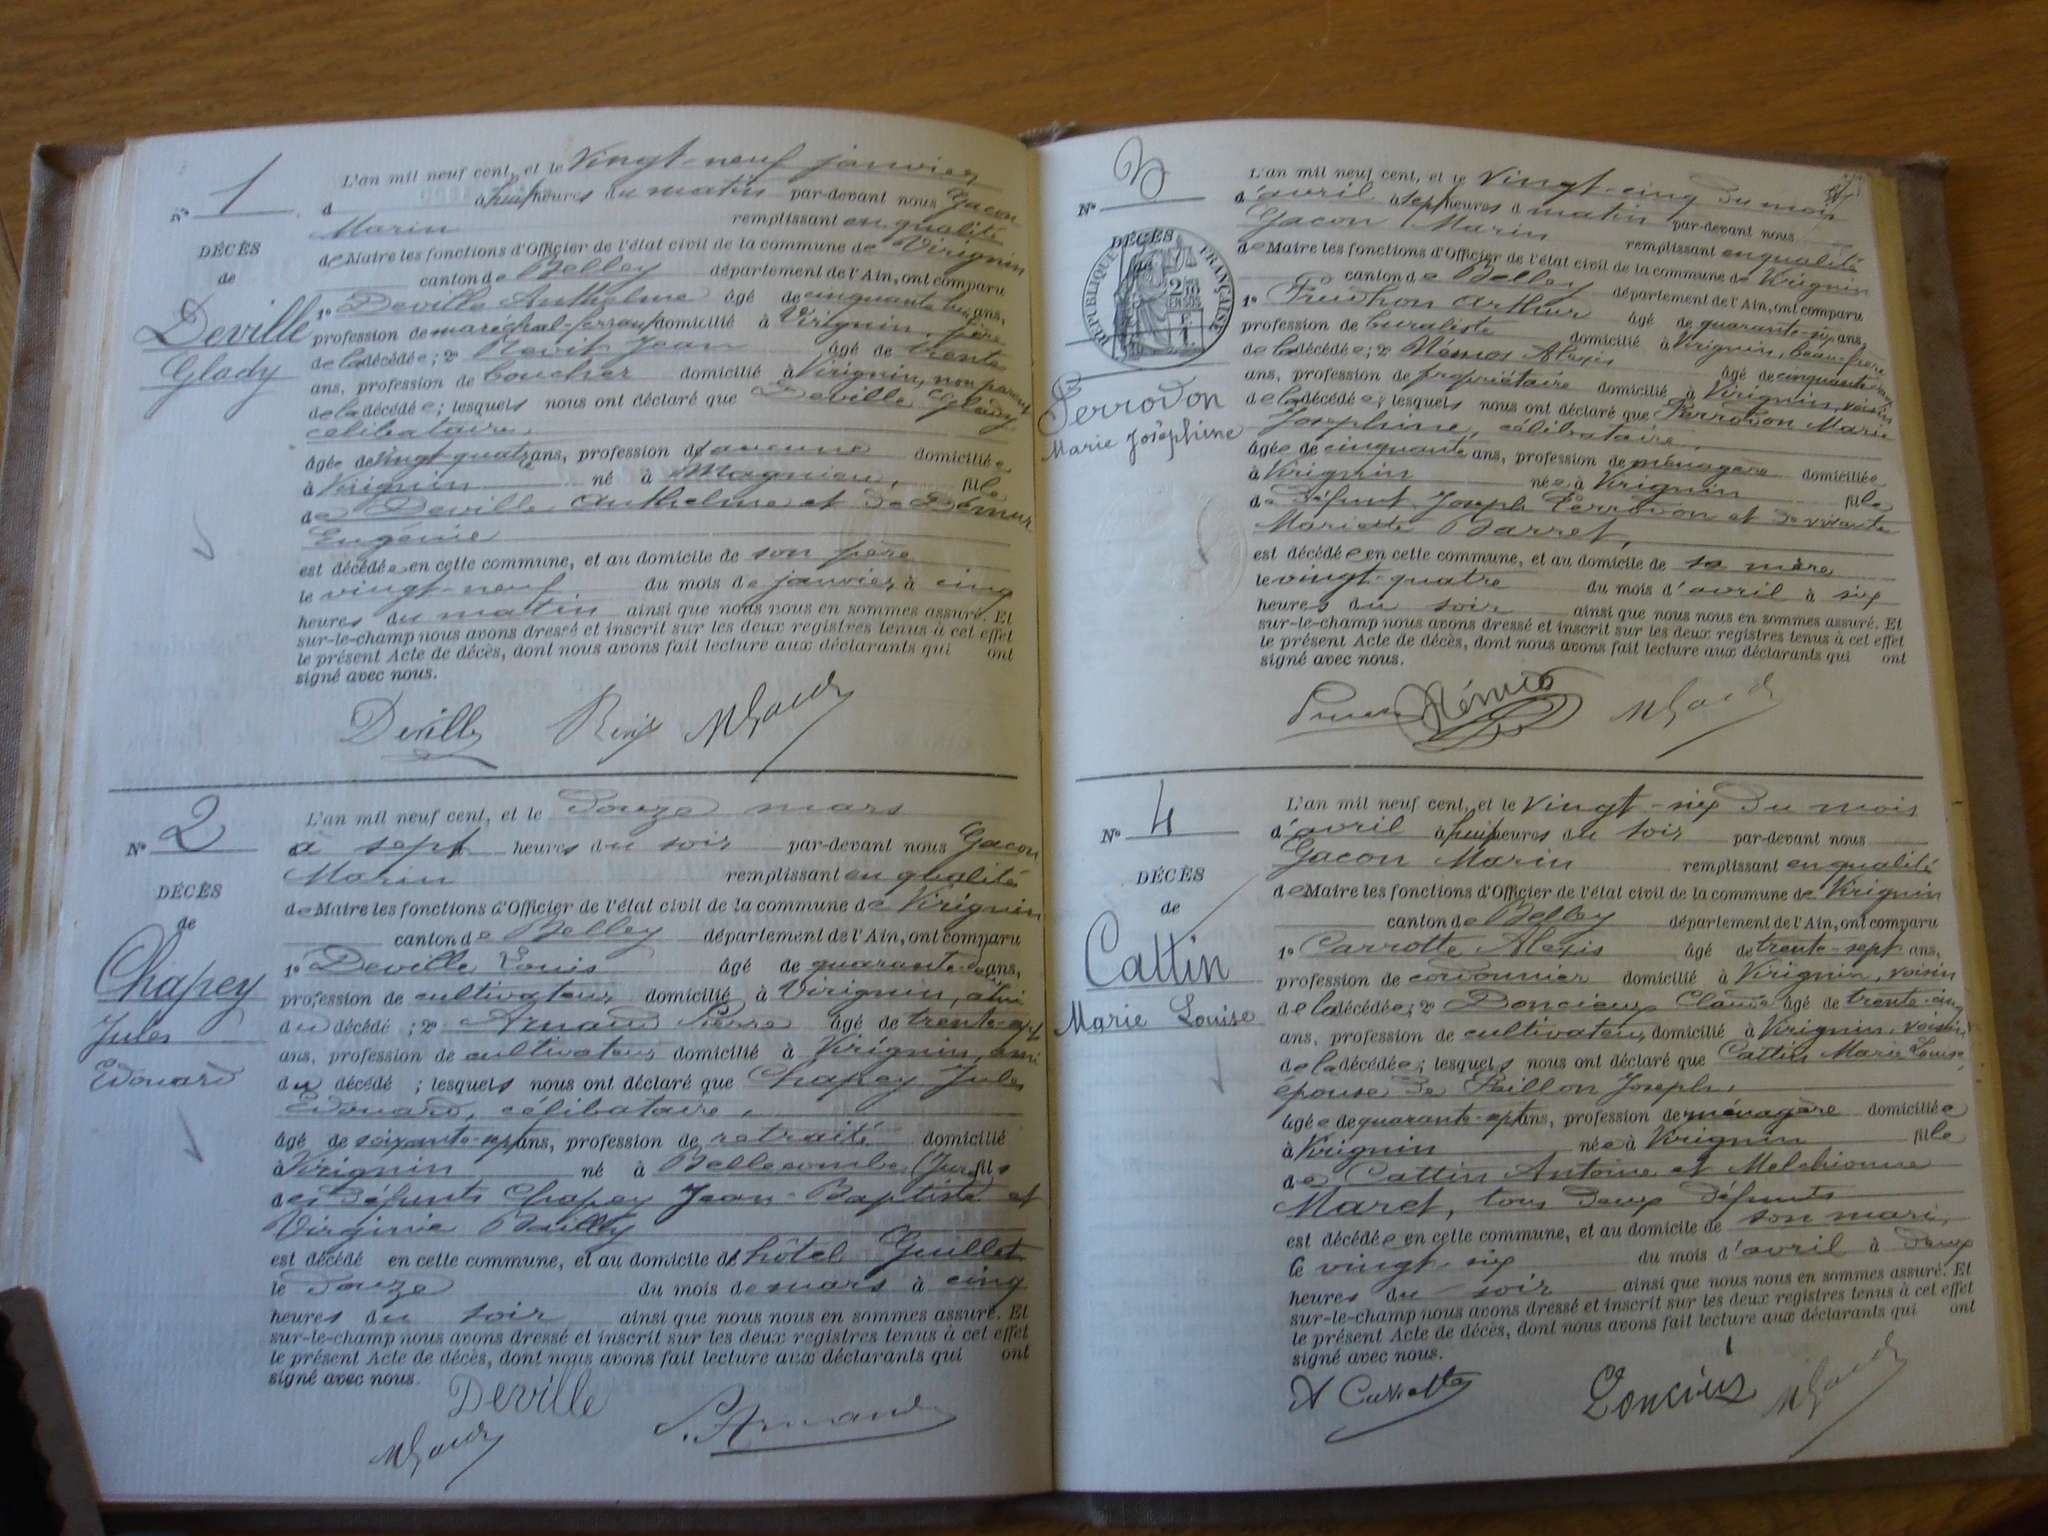 N° 1
DÉCÈS
de
Deville
Glady
L'an mil neuf cent, et le Vingt-neuf janvier
à huit heures du matin par-devant nous Gacon
Marin remplissant en qualité
de Maire les fonctions d'Officier de l'état civil de la commune de Virignin
canton de Belley département de l'Ain, ont comparu
1° Deville Anthelme âgé de cinquante huit ans,
profession de maréchal-ferrant domicilié à Virignin, père
de la décédée; 2° Jean âgé de trente
ans, profession de boucher domicilié à Virignin, non parent
de la décédée; lesquels nous ont déclaré que Deville Glady
célibataire,
âgée de vingt quatre ans, profession d'aucune domiciliée
à Virignin né à Magnieu, fille
de Deville Anthelme et de Démur
Eugénie
est décédée en cette commune, et au domicile de son père
le vingt-neuf du mois de janvier à cinq
heures du matin ainsi que nous nous en sommes assuré. Et
sur-le-champ nous avons dressé et inscrit sur les deux registres tenus à cet effet
le présent Acte de décès, dont nous avons fait lecture aux déclarants qui ont
signé avec nous.
Deville
N° 2
DÉCÈS
de
Chapey
Jules
Edouard
L'an mil neuf cent, et le Douze mars
à sept heures du soir par-devant nous Gacon
Marin remplissant en qualité
de Maire les fonctions d'Officier de l'état civil de la commune de Virignin
canton de Belley département de l'Ain, ont comparu
1° Deville Louis âgé de quarante ans,
profession de cultivateur domicilié à Virignin, ami
du décédé; 2° Arnaud Pierre âgé de trente-sept
ans, profession de cultivateur domicilié à Virignin, ami
du décédé; lesquels nous ont déclaré que Chapey Jules
Edouard, célibataire,
âgé de soixante-sept ans, profession de retraité domicilié
à Virignin né à Bellecombe (Jura) fils
des défunts Chapey Jean-Baptiste et
Virginie Bailly
est décédé en cette commune, et au domicile de hôtel Guillet
le douze du mois de mars à cinq
heures du soir ainsi que nous nous en sommes assuré. Et
sur-le-champ nous avons dressé et inscrit sur les deux registres tenus à cet effet
le présent Acte de décès, dont nous avons fait lecture aux déclarants qui ont
signé avec nous.
Deville
P. Arnaud
N° 3
DÉCÈS
de
RÉPUBLIQUE FRANÇAISE
Perrodon
Marie Joséphine
L'an mil neuf cent, et le Vingt-cinq du mois
d'avril à sept heures d matin par-devant nous
Gacon Marin remplissant en qualité
de Maire les fonctions d'Officier de l'état civil de la commune de Virignin
canton de Belley département de l'Ain, ont comparu
1° Prudhon Arthur âgé de quarante-six ans,
profession de buraliste domicilié à Virignin, beau-frère
de la décédée; 2° Némos Alexis âgé de cinquante
ans, profession de propriétaire domicilié à Virignin, voisin
de la décédée; lesquels nous ont déclaré que Perrodon Marie
Joséphine, célibataire,
âgée de cinquante ans, profession de ménagère domiciliée
à Virignin née à Virignin fille
de défunt Joseph Perrodon et de vivante
Mariette Barret,
est décédée en cette commune, et au domicile de sa mère
le vingt-quatre du mois d'avril à six
heures du soir ainsi que nous nous en sommes assuré. Et
sur-le-champ nous avons dressé et inscrit sur les deux registres tenus à cet effet
le présent Acte de décès, dont nous avons fait lecture aux déclarants qui ont
signé avec nous.
Némos
N° 4
DÉCÈS
de
Cattin
Marie Louise
L'an mil neuf cent, et le Vingt-six du mois
d'avril à huit heures du soir par-devant nous
Gacon Marin remplissant en qualité
de Maire les fonctions d'Officier de l'état civil de la commune de Virignin
canton de Belley département de l'Ain, ont comparu
1° Carrotte Alexis âgé de trente-sept ans,
profession de cordonnier domicilié à Virignin, voisin
de la décédée; 2° Doncieux Claude âgé de trente-cinq
ans, profession de cultivateur domicilié à Virignin, voisin
de la décédée; lesquels nous ont déclaré que Cattin Marie Louise,
épouse de Paillon Joseph,
âgée de quarante-sept ans, profession de ménagère domiciliée
à Virignin née à Virignin fille
de Cattin Antoine et Melchionne
Maret, tous deux défunts
est décédée en cette commune, et au domicile de son mari,
le vingt-six du mois d'avril à deux
heures du soir ainsi que nous nous en sommes assuré. Et
sur-le-champ nous avons dressé et inscrit sur les deux registres tenus à cet effet
le présent Acte de décès, dont nous avons fait lecture aux déclarants qui ont
signé avec nous.
A Carrotte